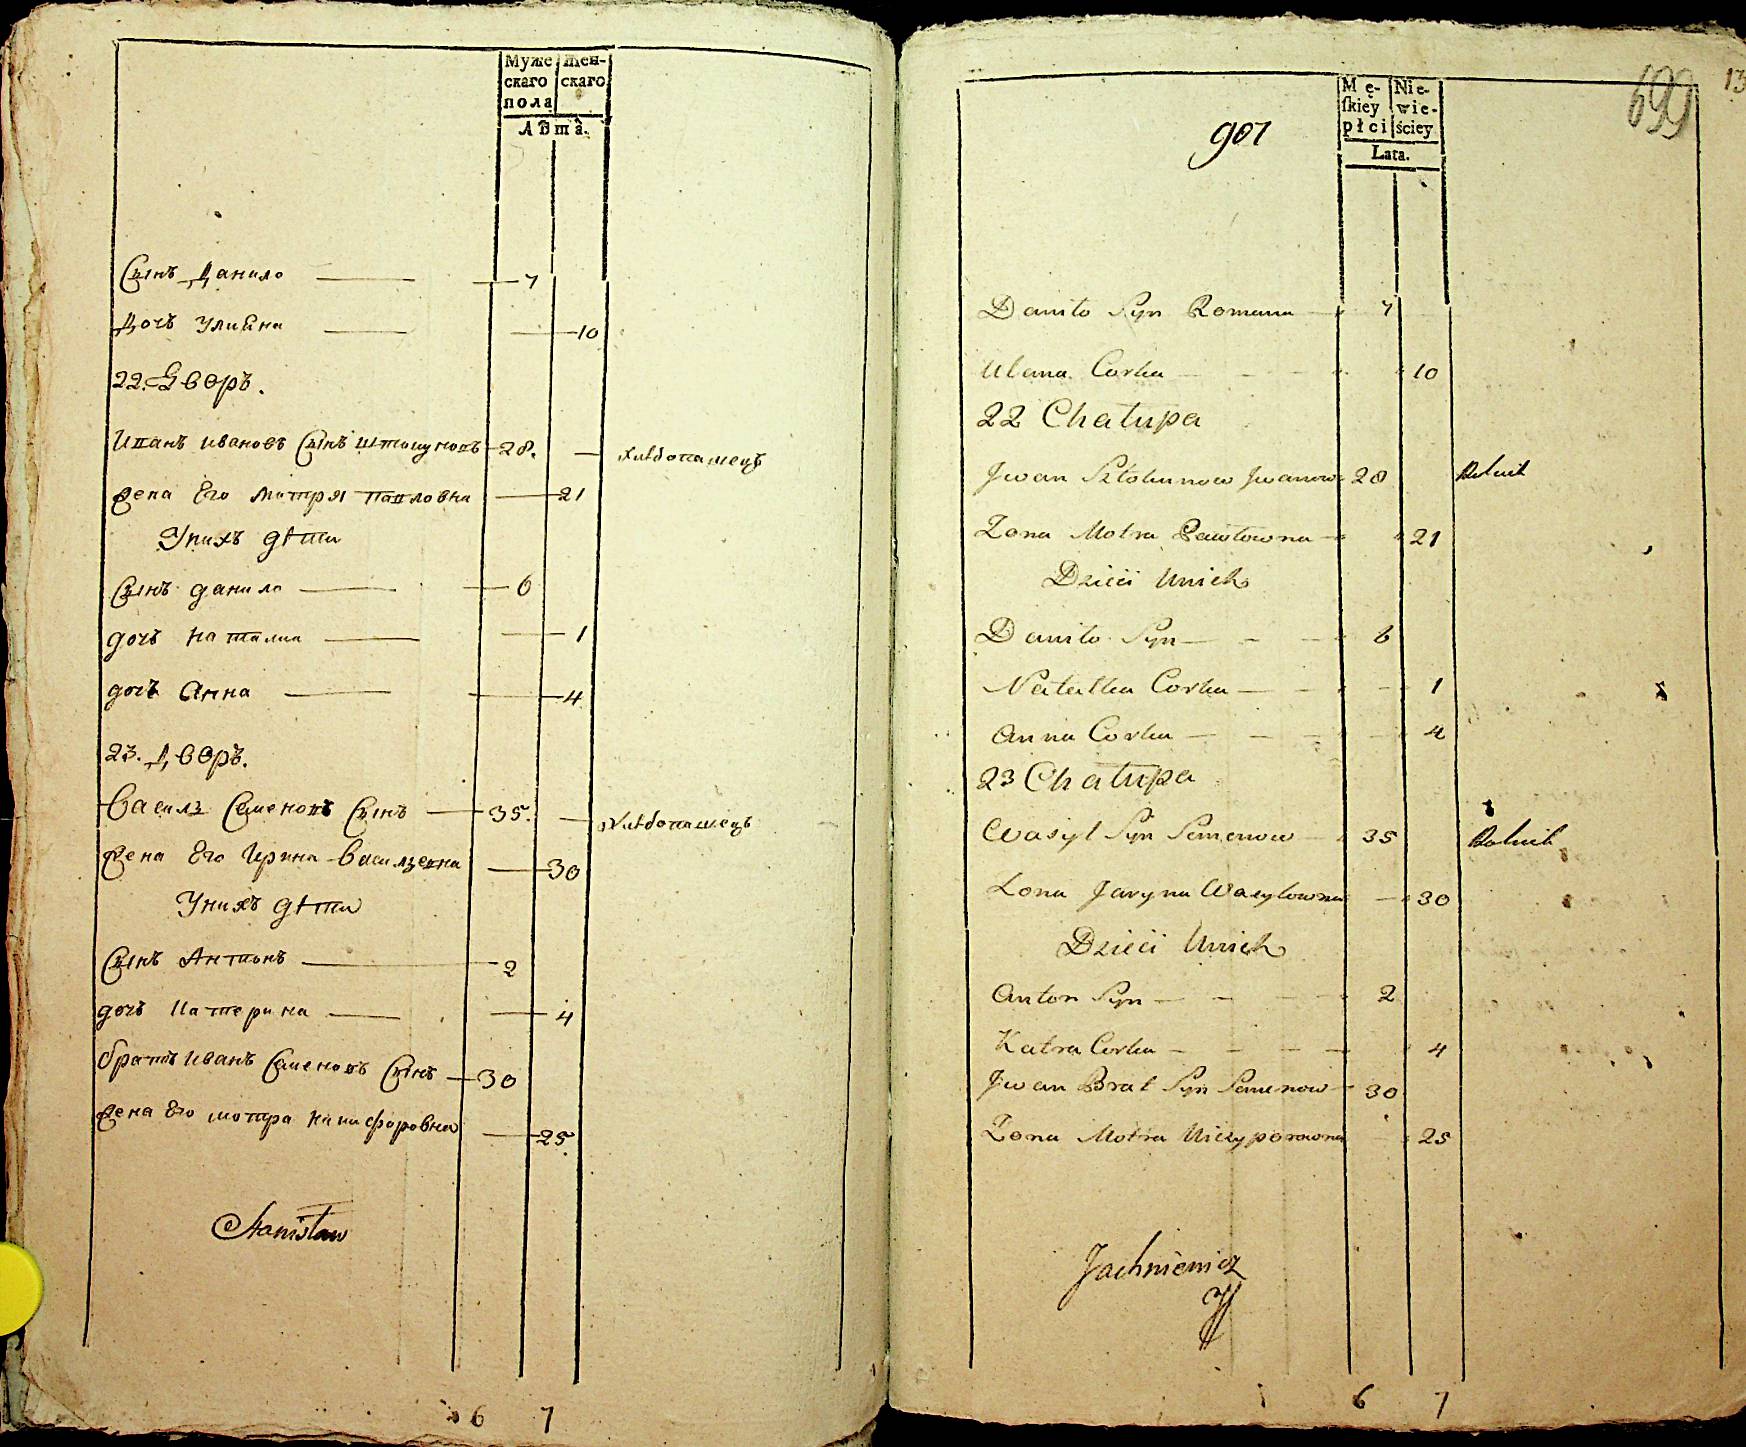 Муже
скаго
пола
Жен-
скаго
Лѣта.
Сынъ Данило 7
Дочъ Улияна 10
22. Дворъ.
Иванъ Ивановъ Сынъ Штокуновъ 28. хлѣбопашецъ
Жена Его Мотря Павловна 21
У нихъ дѣти
Сынъ данило 6
дочъ Наталия 1
дочъ Анна 4
23. Дворъ.
Василъ Семеновъ Сынъ 35. Хлѣбопашецъ
Жена Его Ирина Василѣвна 30
У нихъ дѣти
Сынъ Антонъ 2
дочъ Катерина 4
братъ Иванъ Семеновъ Сынъ 30
Жена Его мотра Никифоровна 25
Stanisław
6 7
699
13
907
Mę-
ſkiey
płci
Nie-
wie-
ściey
Lata.
Daniło Syn Romana 7
Ulana Corka 10
22 Chałupa
Jwan Sztokunow Jwanow 28 Rolnik
Żona Motra Pawłowna 21
Dzieci Unich
Daniło Syn 6
Natalka Corka 1
Anna Corka 4
23 Chałupa
Wasyl Syn Semenow 35 Rolnik
Żona Jaryna Wasylowna 30
Dzieci Unich
Anton Syn 2
Katra Corka 4
Jwan Brat Syn Semenow 30
Żona Motra Niczyporowna 25
Jachniewicz
6 7